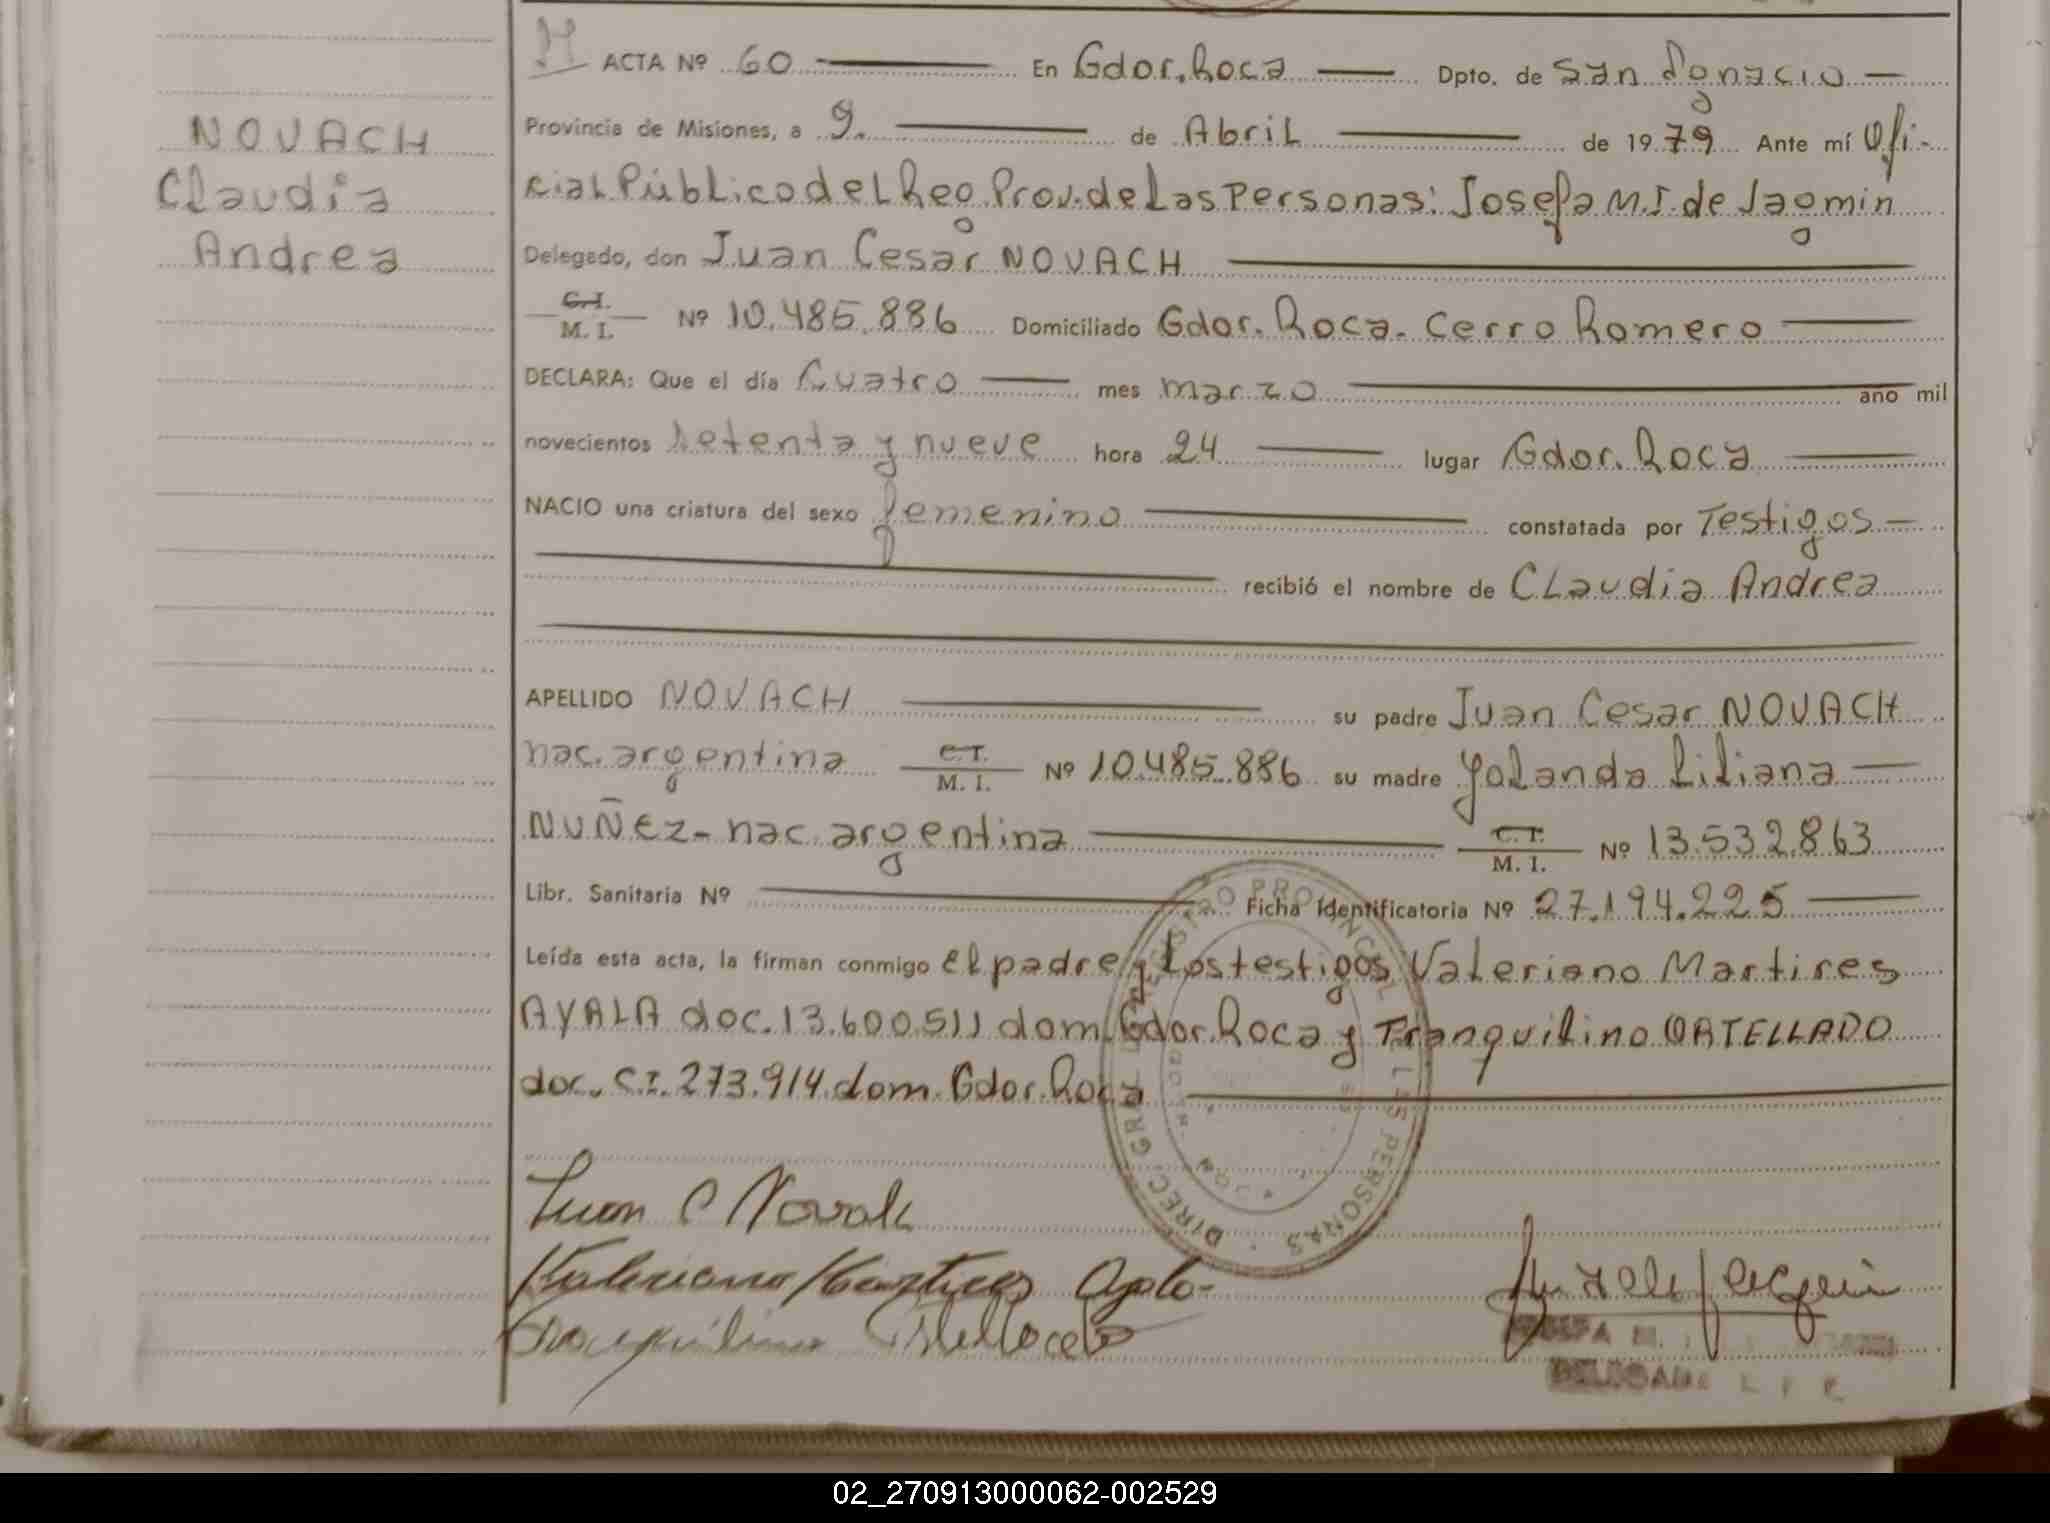 NOVACH
Claudia
Andrea
ACTA Nº 60 En Gdor. Roca Dpto. de San Ignacio
Provincia de Misiones, a 9. de Abril de 1979 Ante mí Ofi-
cial Público del Reg. Prov. de las Personas: Josefa M. I. de Jagmin
Delegado, don Juan Cesar NOVACH
C.I.
M. I. Nº 10.485.886 Domiciliado Gdor. Roca. Cerro Romero
DECLARA: Que el día Cuatro mes marzo año mil
novecientos setenta y nueve hora 24 lugar Gdor. Roca
NACIO una criatura del sexo femenino constatada por Testigos
recibió el nombre de Claudia Andrea
APELLIDO NOVACH su padre Juan Cesar NOVACH
nac. argentina C.I. M. I. Nº 10.485.886 su madre Yolanda Liliana
NUÑEZ - nac. argentina C.I. M. I. Nº 13.532.863
Libr. Sanitaria Nº Ficha Identificatoria Nº 27.194.225
Leída esta acta, la firman conmigo el padre y los testigos Valeriano Martires
AYALA doc. 13.600.511 dom. Gdor. Roca y Tranquilino ORTELLADO
doc. C.I. 273.914 dom. Gdor. Roca
DIREC. GRAL. DEL REGISTRO PROVINCIAL DE LAS PERSONAS
ROCA
Juan C Novak
Valeriano Martires Ayala
JOSEFA M.
DELEGADA
02_270913000062-002529